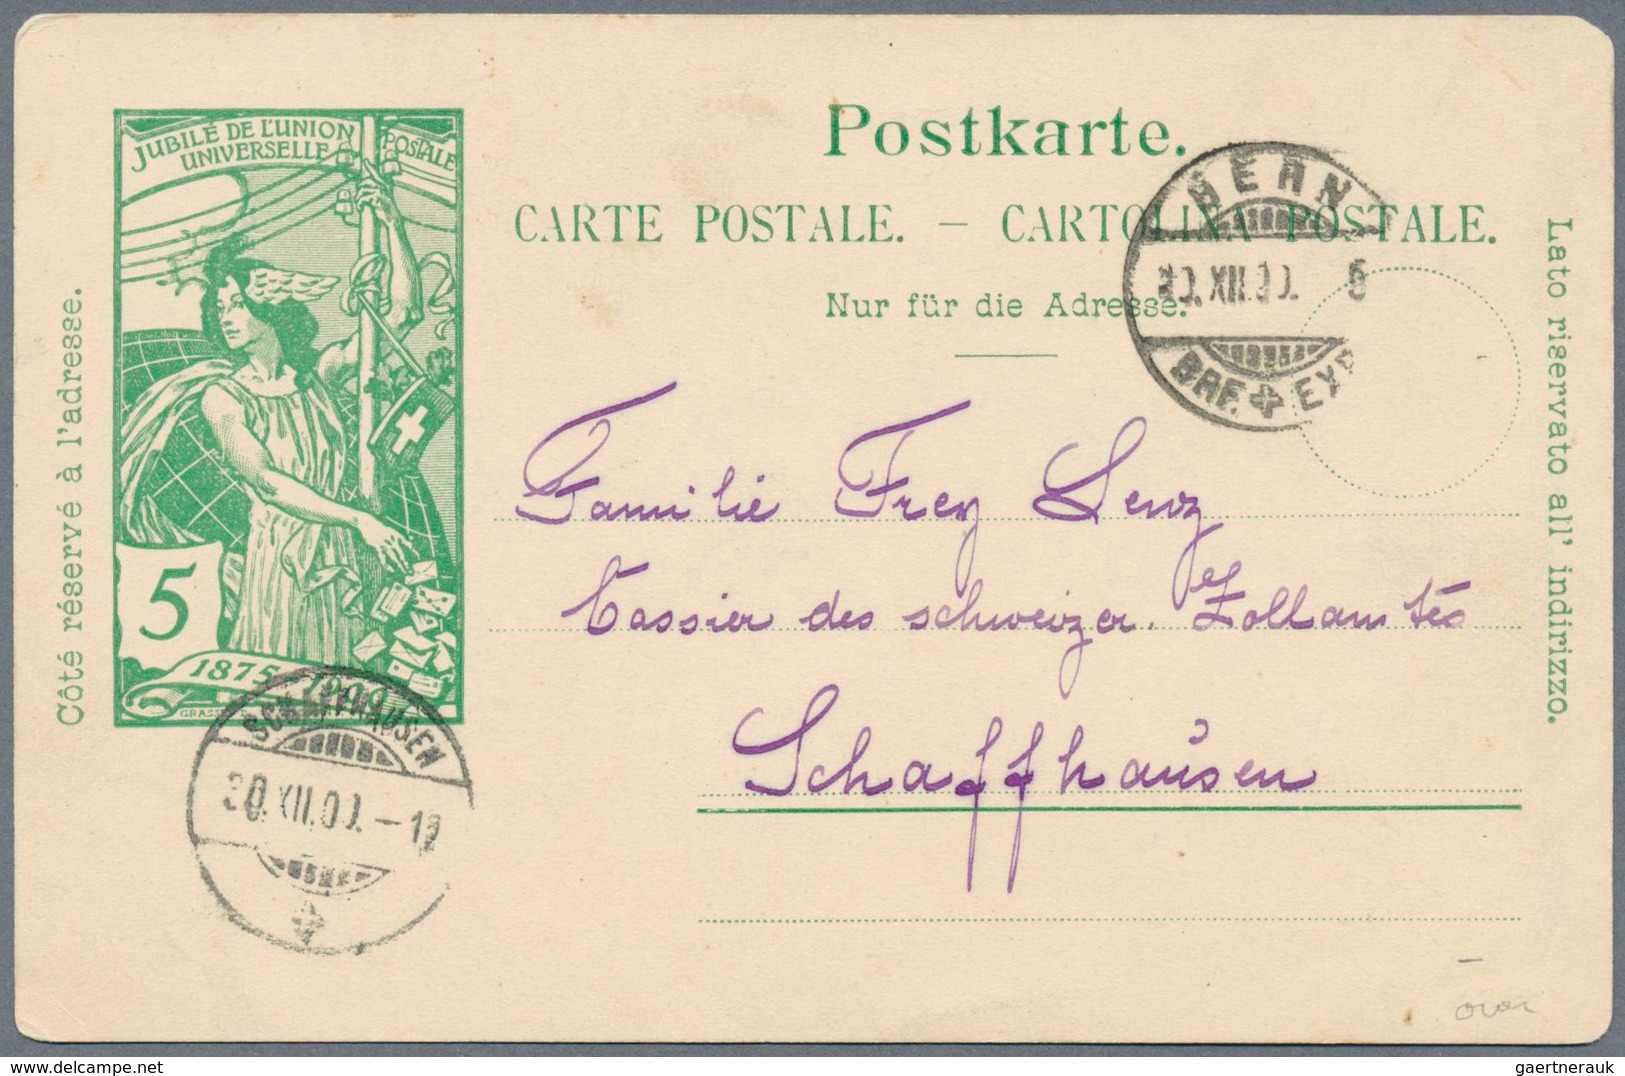 JUBILÉ DE L'UNION POSTALE
UNIVERSELLE
5
1875 1900
Postkarte.
CARTE POSTALE. — CARTOLINA POSTALE.
Nur für die Adresse.
Côté réservé à l'adresse.
Lato riservato all' indirizzo.
BERN
30.XII.00. 6
BRF. EXP
Familie Frey Lenz
Cassier des schweizer. Zollamtes
Schaffhausen
SCHAFFHAUSEN
30.XII.00.-12
gaertnerauk